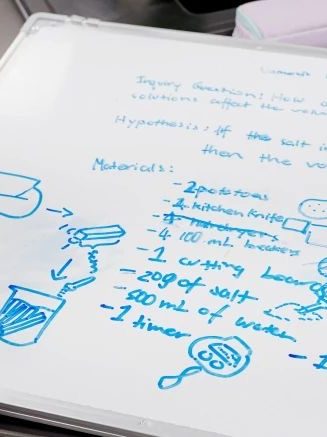 Inquiry Question: How
solutions affect the
Hypothesis: If the salt
then the
Materials:
- 2 potatoes
- 1 kitchen knife
- 4 100 mL beakers
- 1 cutting board
- 20g of salt
- 500 mL of water
- 1 timer
- 1